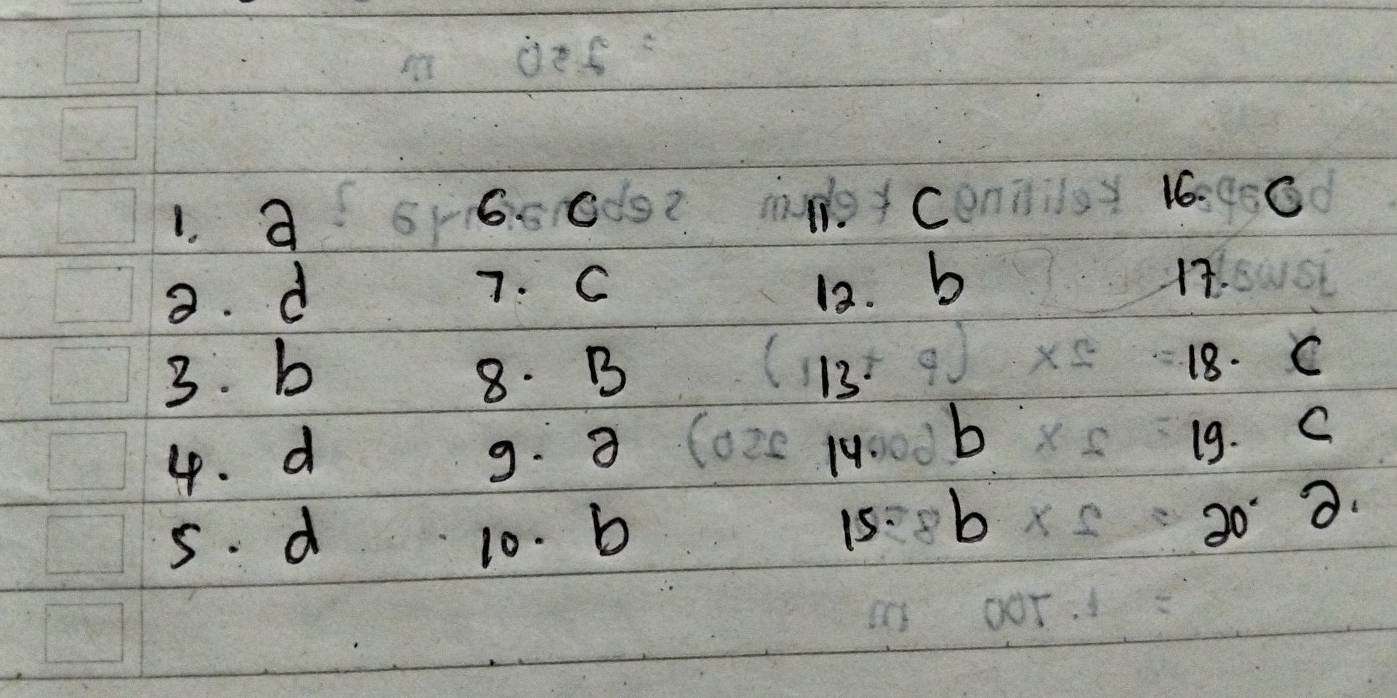 1. a 6. C 11. C 16. C
2. d 7. C 12. b 17.
3. b 8. B 13. 18. C
4. d 9. a 14. b 19. C
5. d 10. b 15. b 20. a.